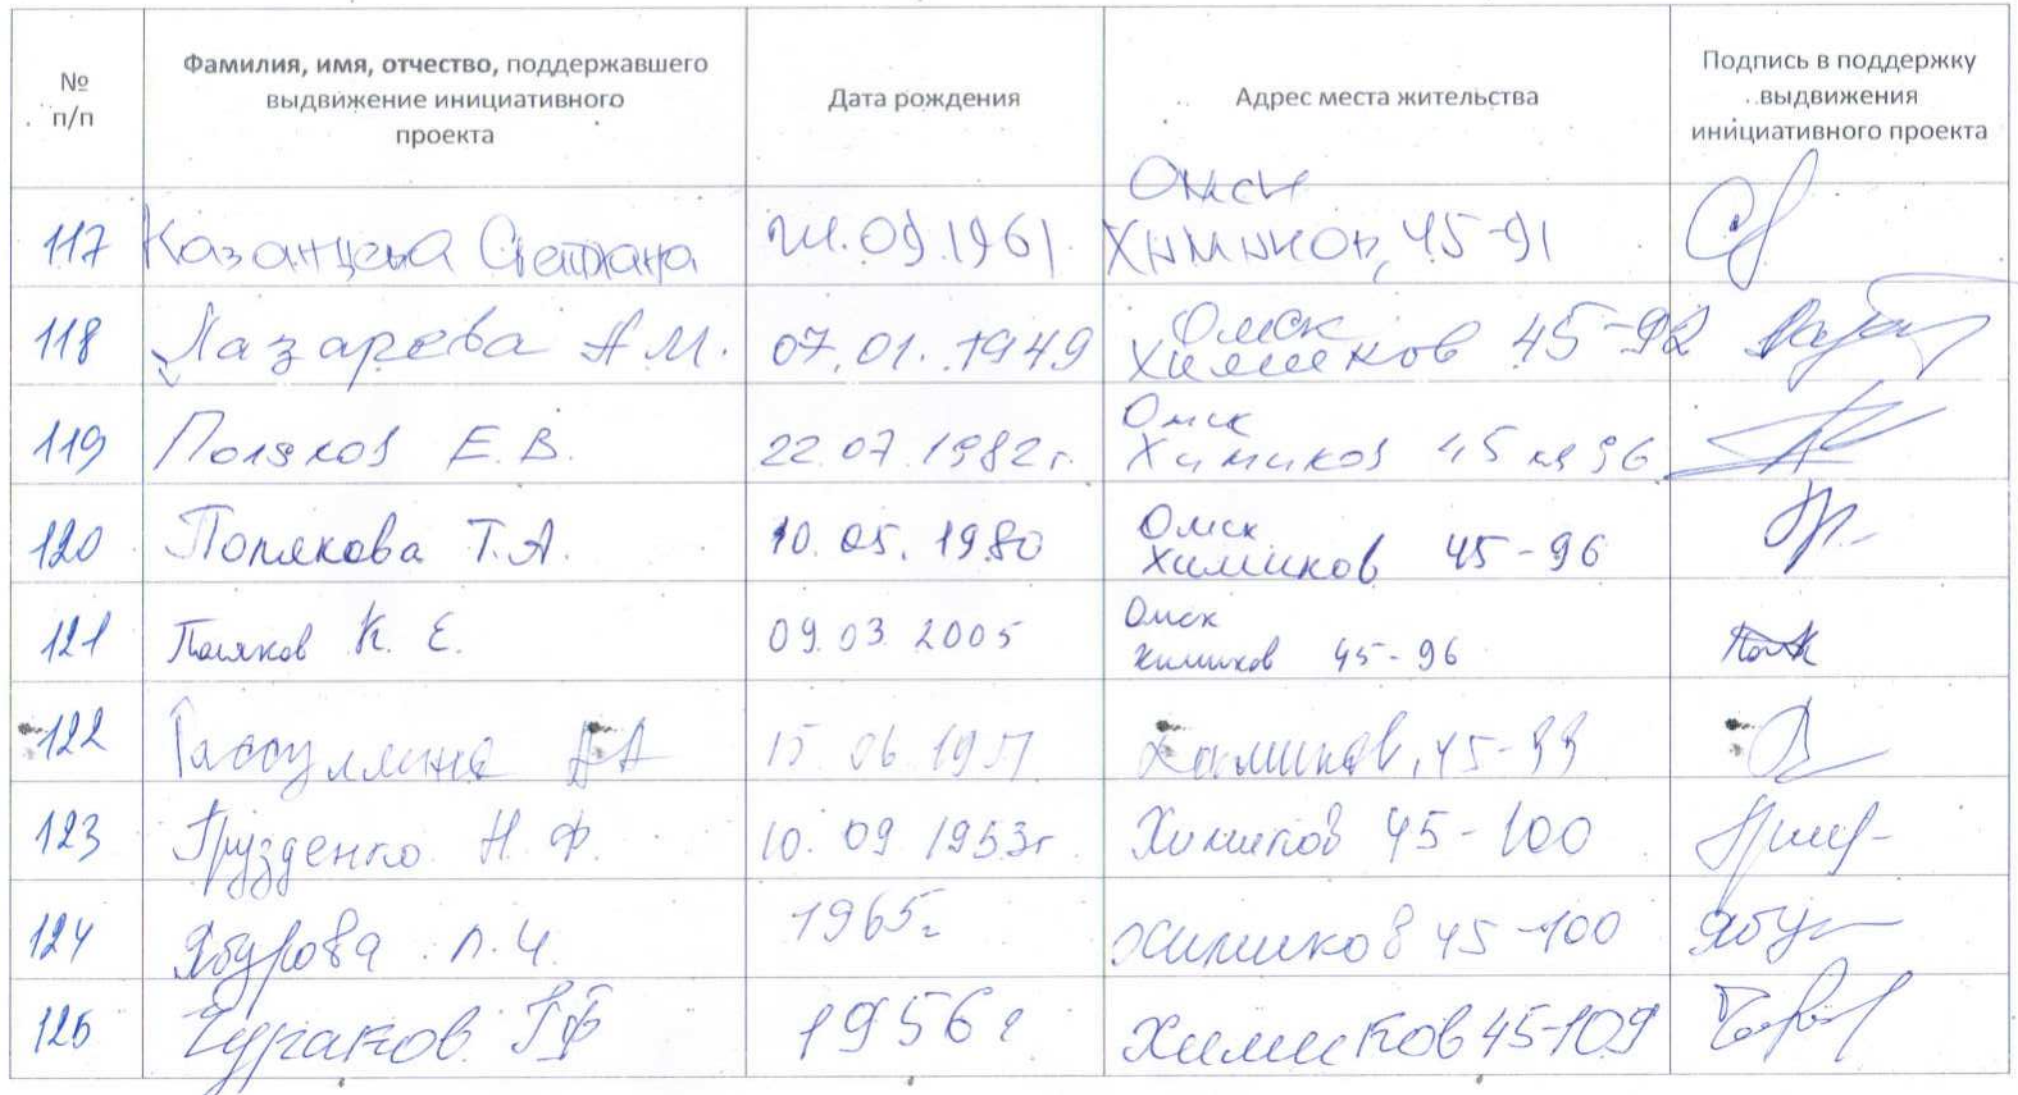 №
п/п
Фамилия, имя, отчество, поддержавшего
выдвижение инициативного
проекта
Дата рождения
Адрес места жительства
Подпись в поддержку
выдвижения
инициативного проекта
117 Казанцева Светлана .09.1961 Омск
Химиков, 45-91
118 Лазарева А.М. 07.01.1949 Омск
Химиков 45-92
119 Поляков Е.В. 22.07.1982г. Омск
Химиков 45 кв 96
120 Полякова Т.А. 10.05.1980 Омск
Химиков 45-96
121 Поляков К. Е. 09.03.2005 Омск
Химиков 45-96
122 15 06 Химиков, 45-99
123 Груздденко Н.Ф. 10.09 1953г Химиков 45-100
124 Ябурова 1965г Химиков 45-100
125 Чураков 1956г Химиков 45-109